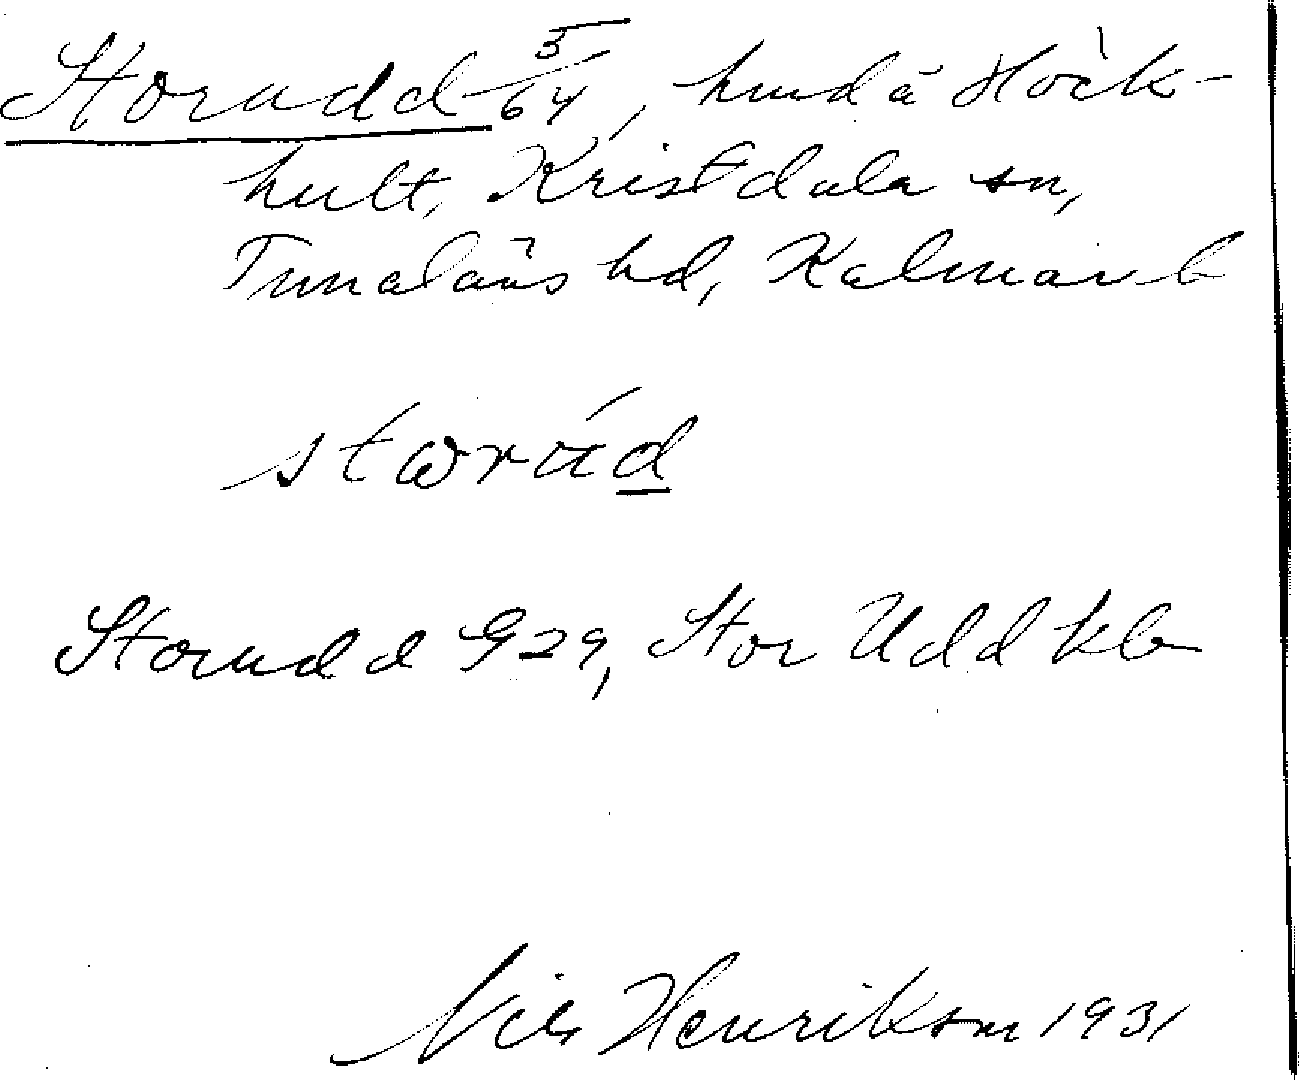 Storudd 5/64, hmd å Höck-
hult, Kristdala sn,
Tunaläns hd, Kalmar l
stωrúd
Storudd G29, Stor Udd kb
Nils Henrikson 1931